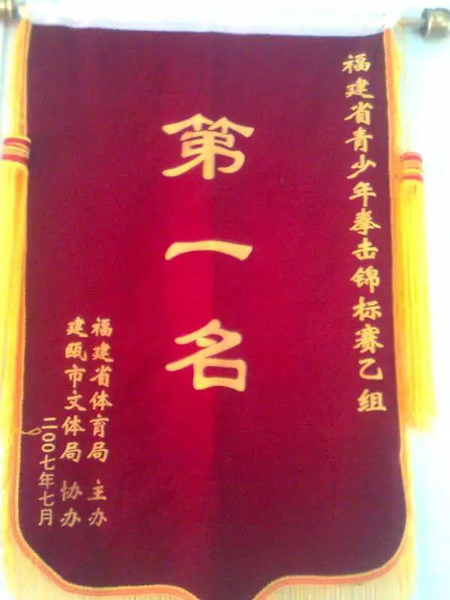 福建省青少年拳击锦标赛乙组
第一名
福建省体育局 主办
建瓯市文体局 协办
二00七年七月